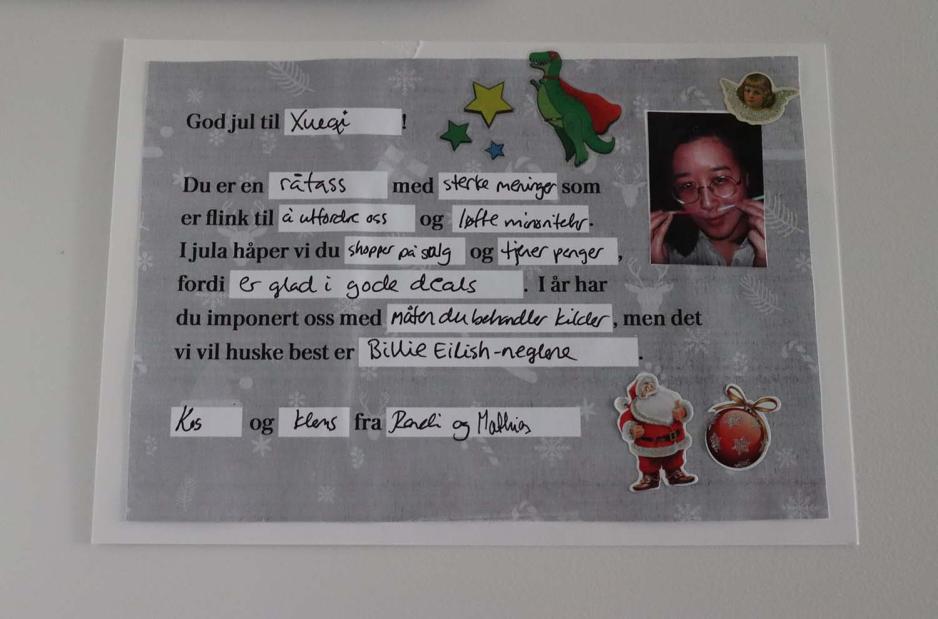 God jul til Xueqi !
Du er en råtass med sterke meninger som
er flink til å utfordre oss og løfte minoriteter.
I jula håper vi du shopper på salg og tjener penger ,
fordi er glad i gode deals . I år har
du imponert oss med måten du behandler kilder , men det
vi vil huske best er Billie Eilish-neglene .
Kos og klems fra Randi og Mathias